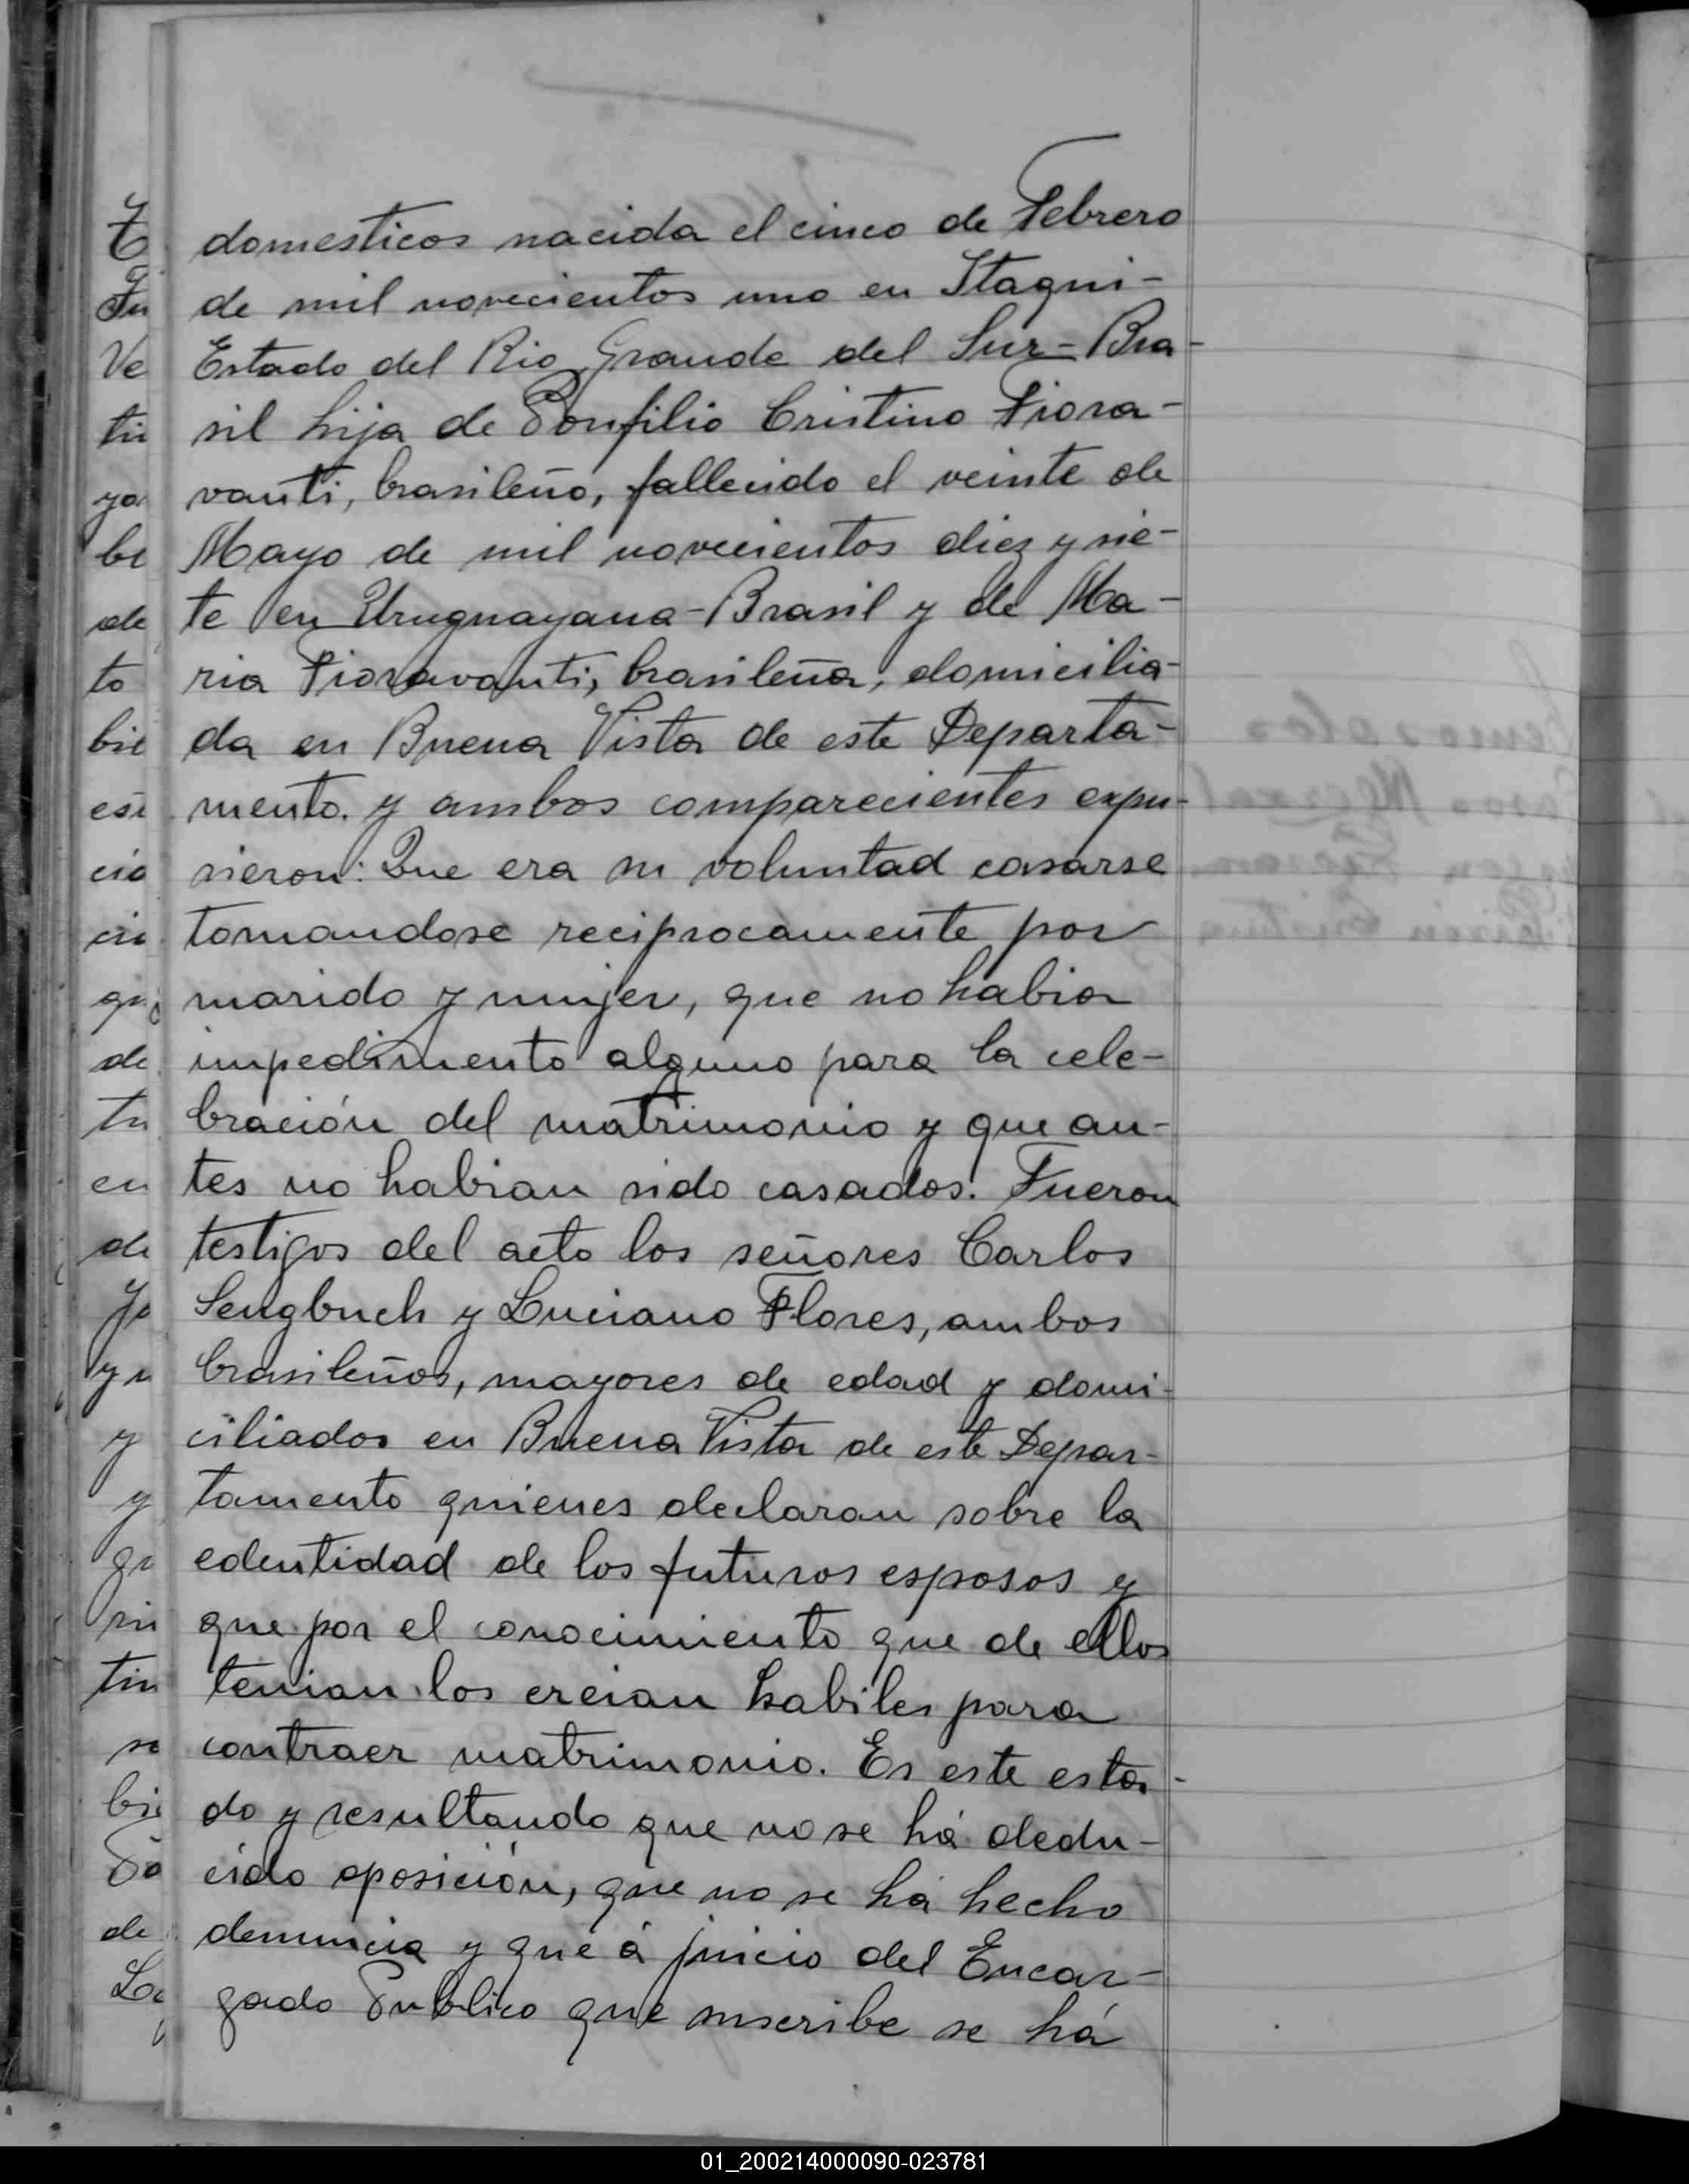 domesticos nacida el cinco de Febrero
de mil novecientos uno en Itaqui-
Estado del Rio Grande del Sur=Bra-
sil hija de Ponfilio Cristino Fiora-
vanti, brasileño, fallecido el veinte de
Mayo de mil novecientos diez y sie-
te en Uruguayana-Brasil y de Ma-
ria Fioravanti, brasileña, domicilia-
da en Buena Vista de este Departa-
mento. y ambos comparecientes expu-
sieron: Que era su voluntad casarse
tomandose reciprocamente por
marido y mujer, que no habia
impedimento alguno para la cele-
bración del matrimonio y que an-
tes no habian sido casados. Fueron
testigos del acto los señores Carlos
Sengbuch y Luciano Flores, ambos
brasileños, mayores de edad y domi-
ciliados en Buena Vista de este Depar-
tamento quienes declaran sobre la
edentidad de los futuros esposos y
que por el conocimiento que de ellos
tenian los creian habiles para
contraer matrimonio. En este esta-
do y resultando que no se há dedu-
cido oposición, que no se há hecho
denuncia y que á juicio del Encar-
gado Publico que suscribe se há
01_200214000090-023781